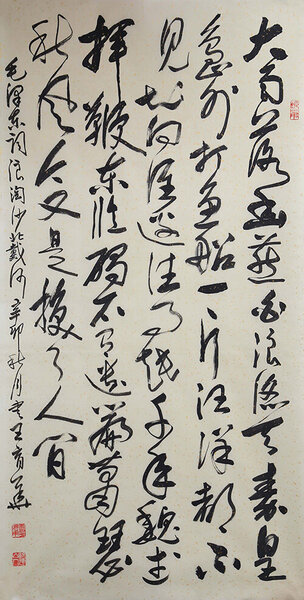 大雨落幽燕白浪滔天秦皇
岛外打鱼船一片汪洋都不
见知向谁边往事越千年魏武
挥鞭东临碣石有遗篇萧瑟
秋风今又是换了人间
毛泽东词浪淘沙北戴河辛卯秋月王育